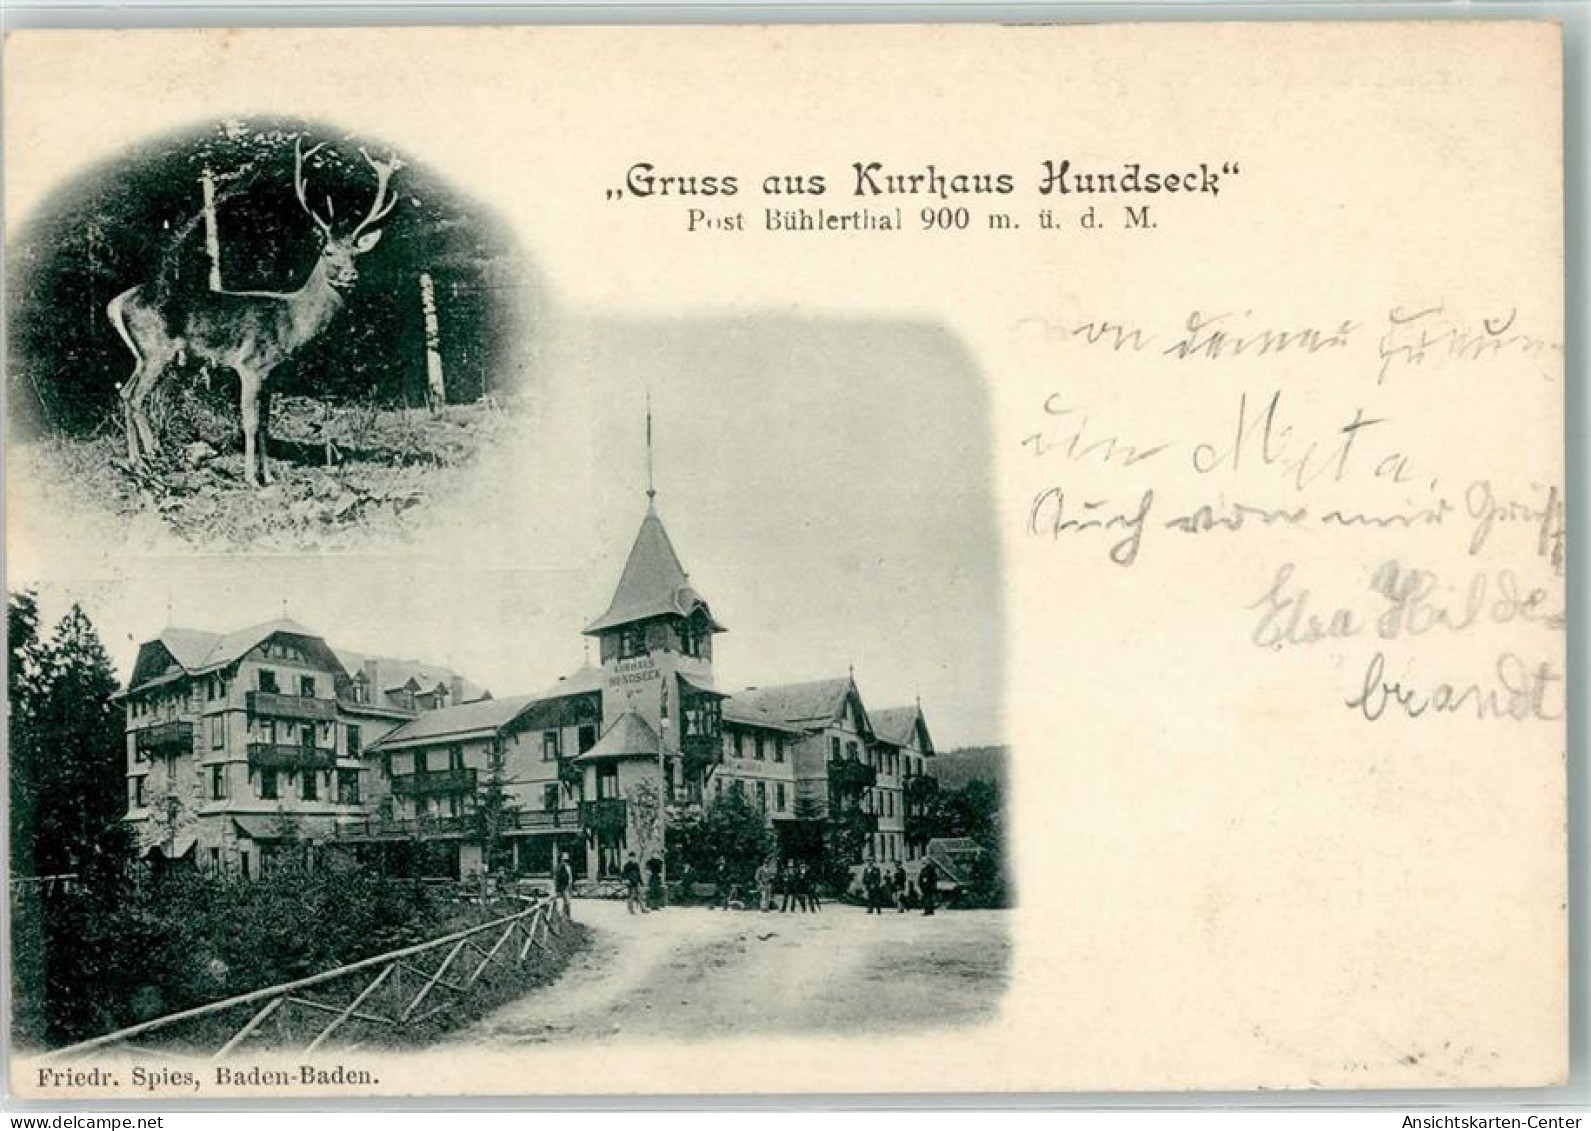 „Gruss aus Kurhaus Hundseck“
Post Bühlerthal 900 m. ü. d. M.
von deiner Freun-
din Meta.
Auch von mir Gruß
Elsa Hilde-
brandt
KURHAUS
HUNDSECK
Friedr. Spies, Baden-Baden.
Ansichtskarten-Center